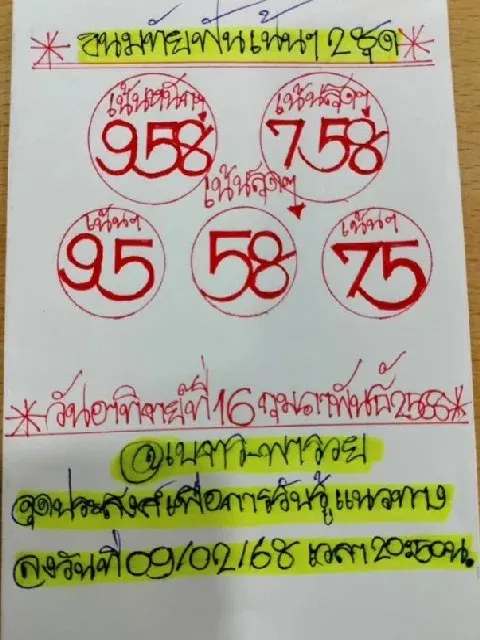 ขนมทัยฟันเน้นๆ 2 ชุด
เน้นหนักๆ เน้นสุดๆ
958 758
เน้นสุดๆ
เน้นๆ เน้นๆ
95 58 75
วันอาทิตย์ที่ 16 กุมภาพันธ์ 2568
จุดประสงค์เพื่อการรับรู้แนวทาง
ลงวันที่ 09/02/68 เวลา น.